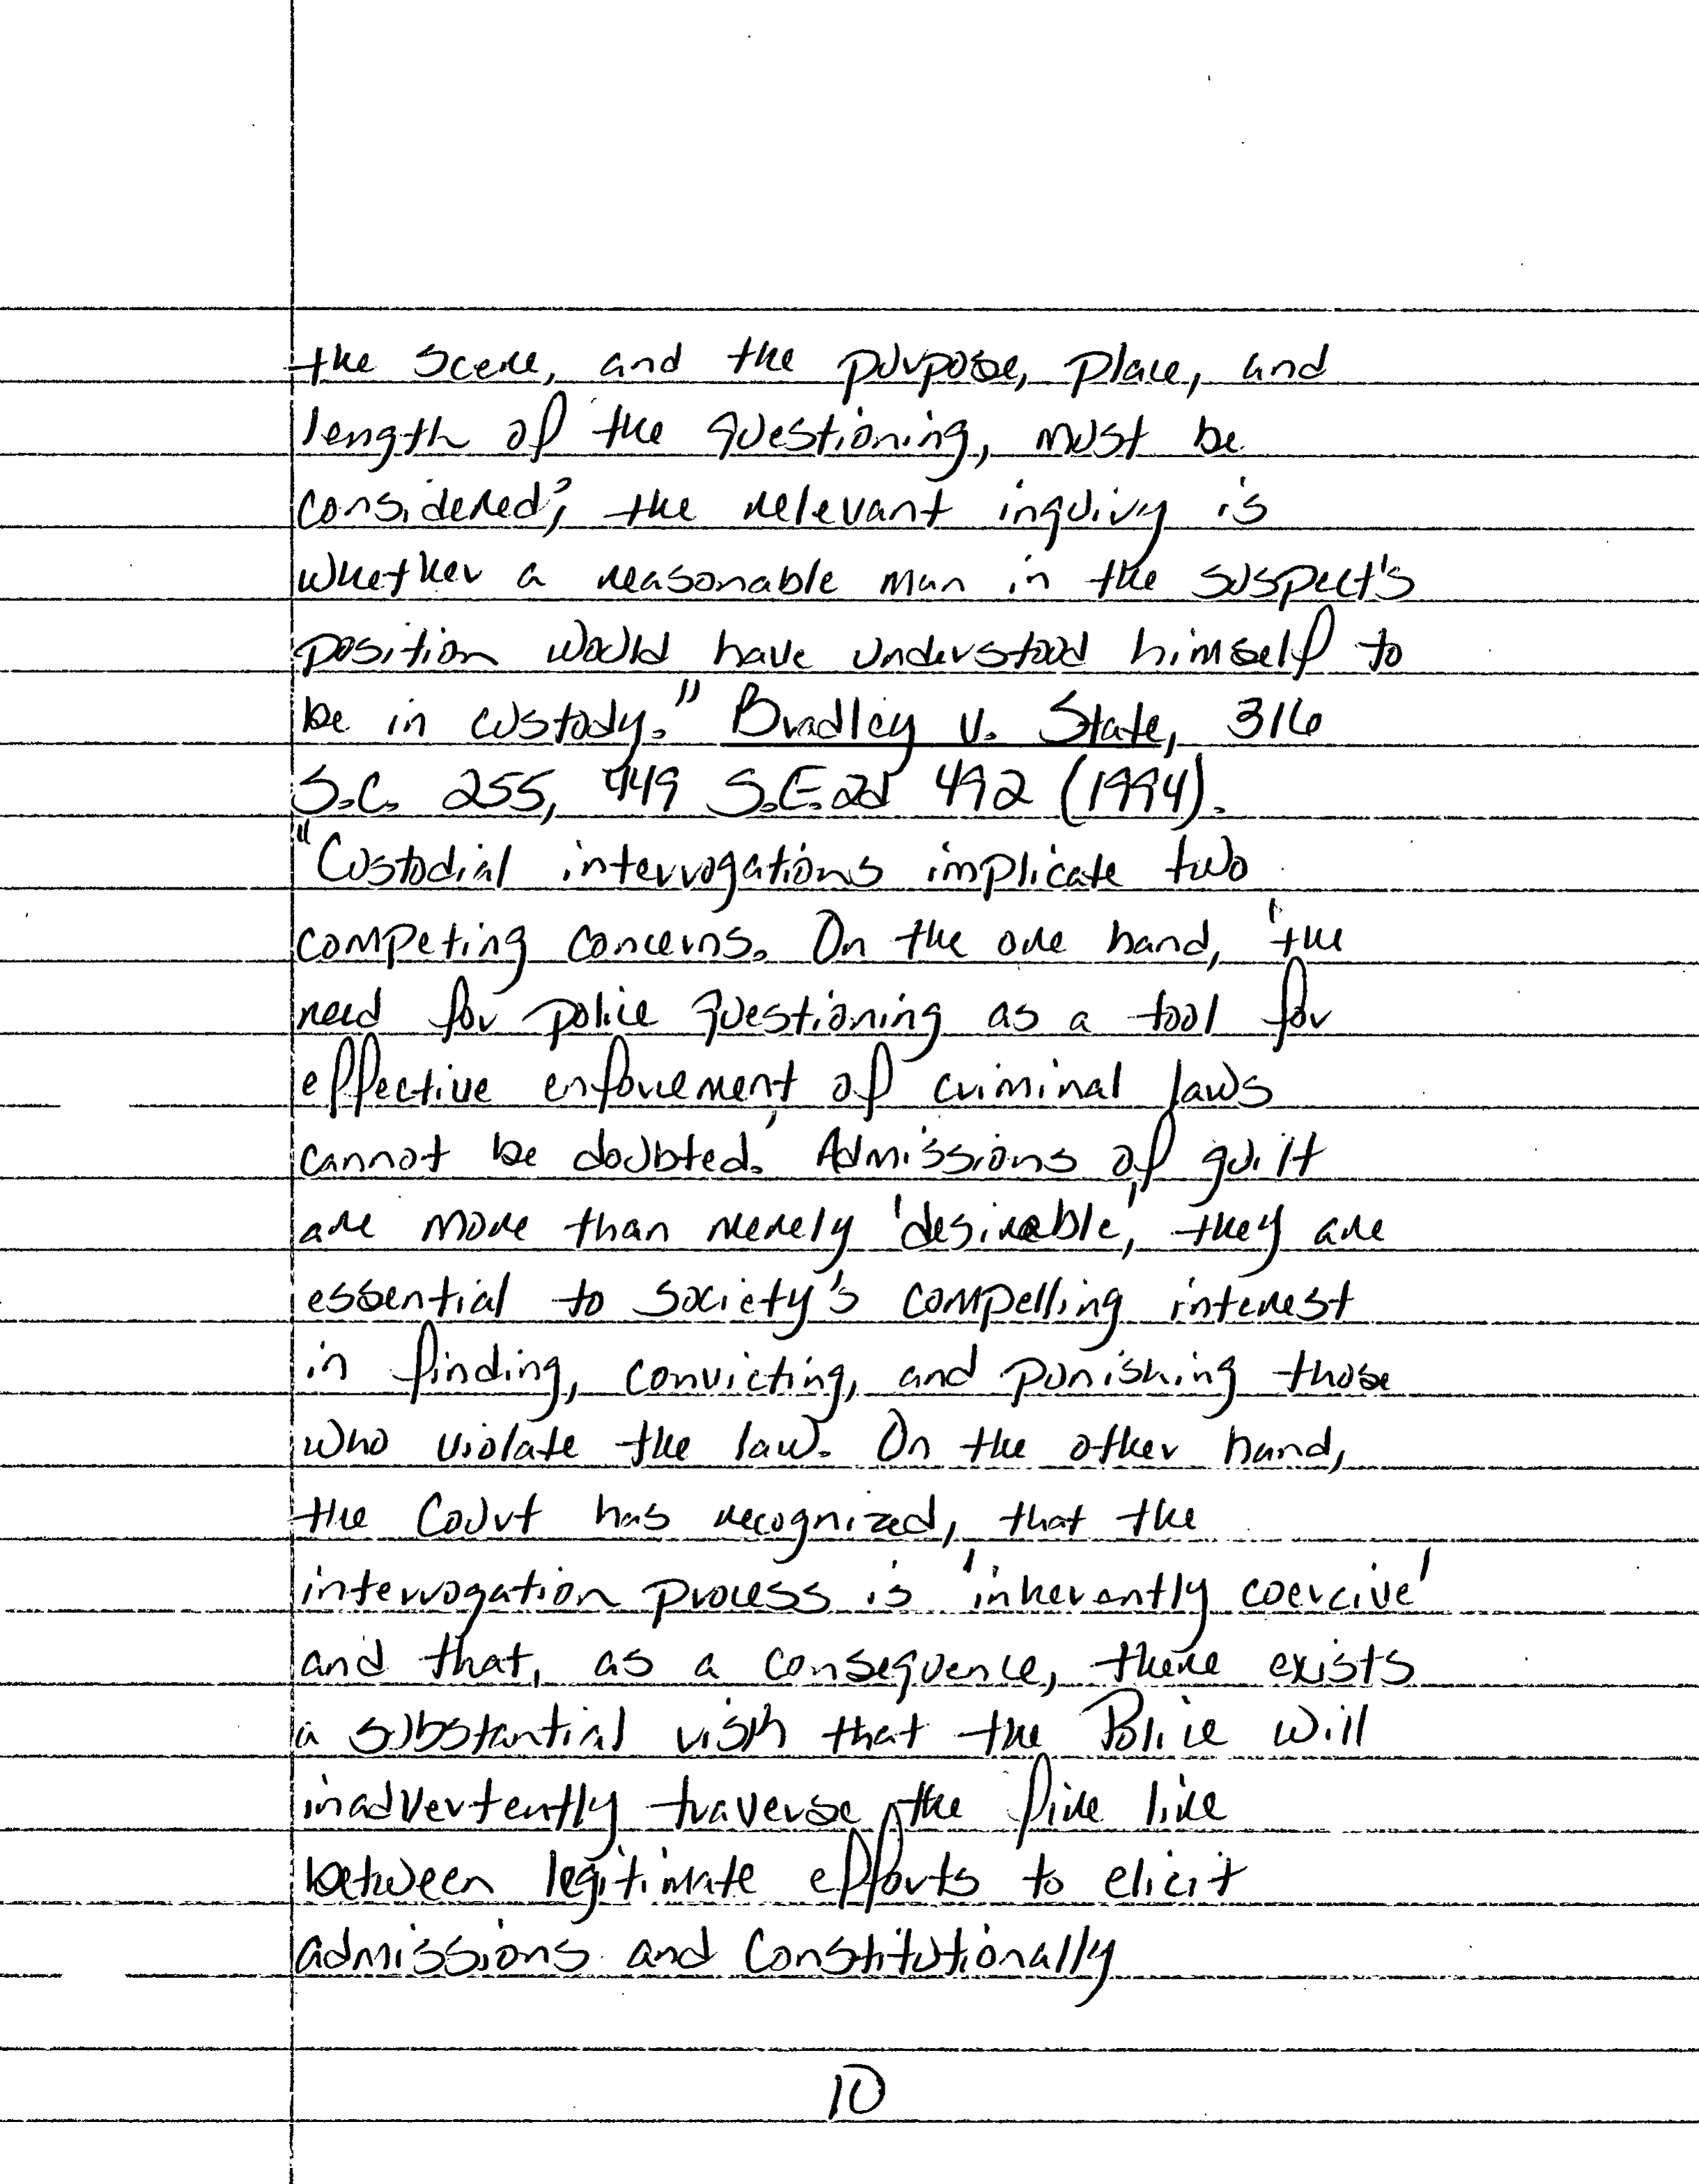 the scene, and the purpose, place, and
length of the questioning, must be
considered; the relevant inquiry is
whether a reasonable man in the suspect's
position would have understood himself to
be in custody." Bradley v. State, 316
S.C. 255, 449 S.E.2d 492 (1994).
"Custodial interrogations implicate two
competing concerns. On the one hand, 'the
need for police questioning as a tool for
effective enforcement of criminal laws
cannot be doubted.' Admissions of guilt
are more than merely 'desirable', they are
essential to society's compelling interest
in finding, convicting, and punishing those
who violate the law. On the other hand,
the Court has recognized, that the
interrogation process is 'inherently coercive'
and that, as a consequence, there exists
a substantial risk that the Police will
inadvertently traverse the fine line
between legitimate efforts to elicit
admissions and Constitutionally
10